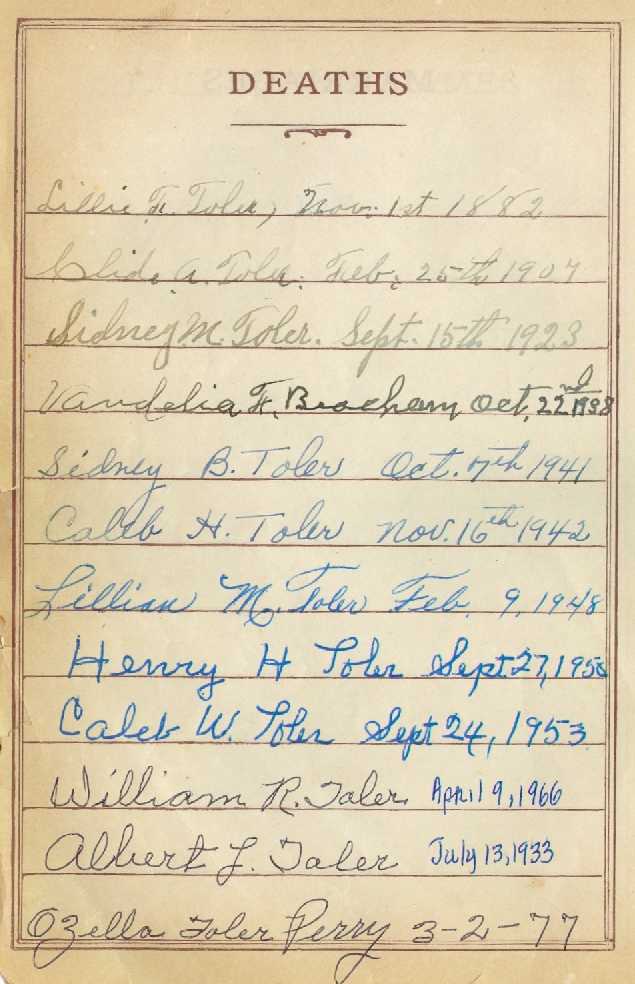 DEATHS
Lillie F. Toler, Nov. 1st 1882
A. Toler. Feb. 25th 1907
Sidney M. Toler. Sept. 15th 1923
Vandelia F. Brocham Oct. 22nd
Sidney B. Toler Oct. 7th 1941
Caleb H. Toler Nov. 16th 1942
Lillian M. Toler Feb. 9, 1948
Henry H Toler Sept 27,
Caleb W. Toler Sept 24, 1953
William R. Toler April 9, 1966
Albert L. Toler July 13, 1933
Ozella Toler Perry 3-2-77